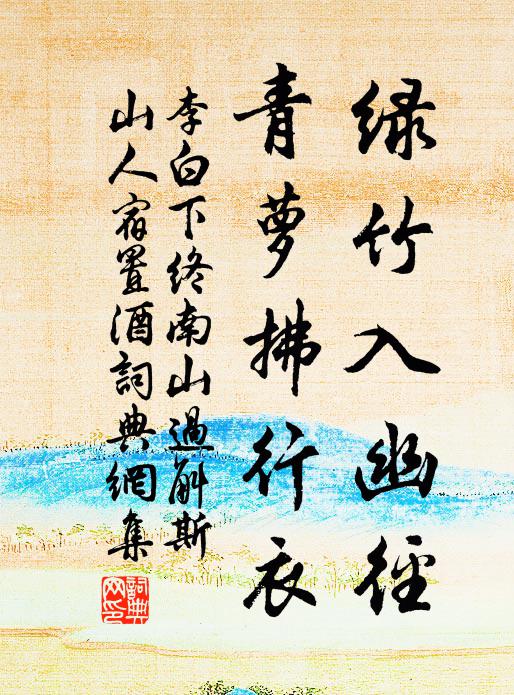 绿竹入幽徑
青萝拂行衣
李白下终南山過斛斯
山人宿置酒詞典網集
詞典
网印